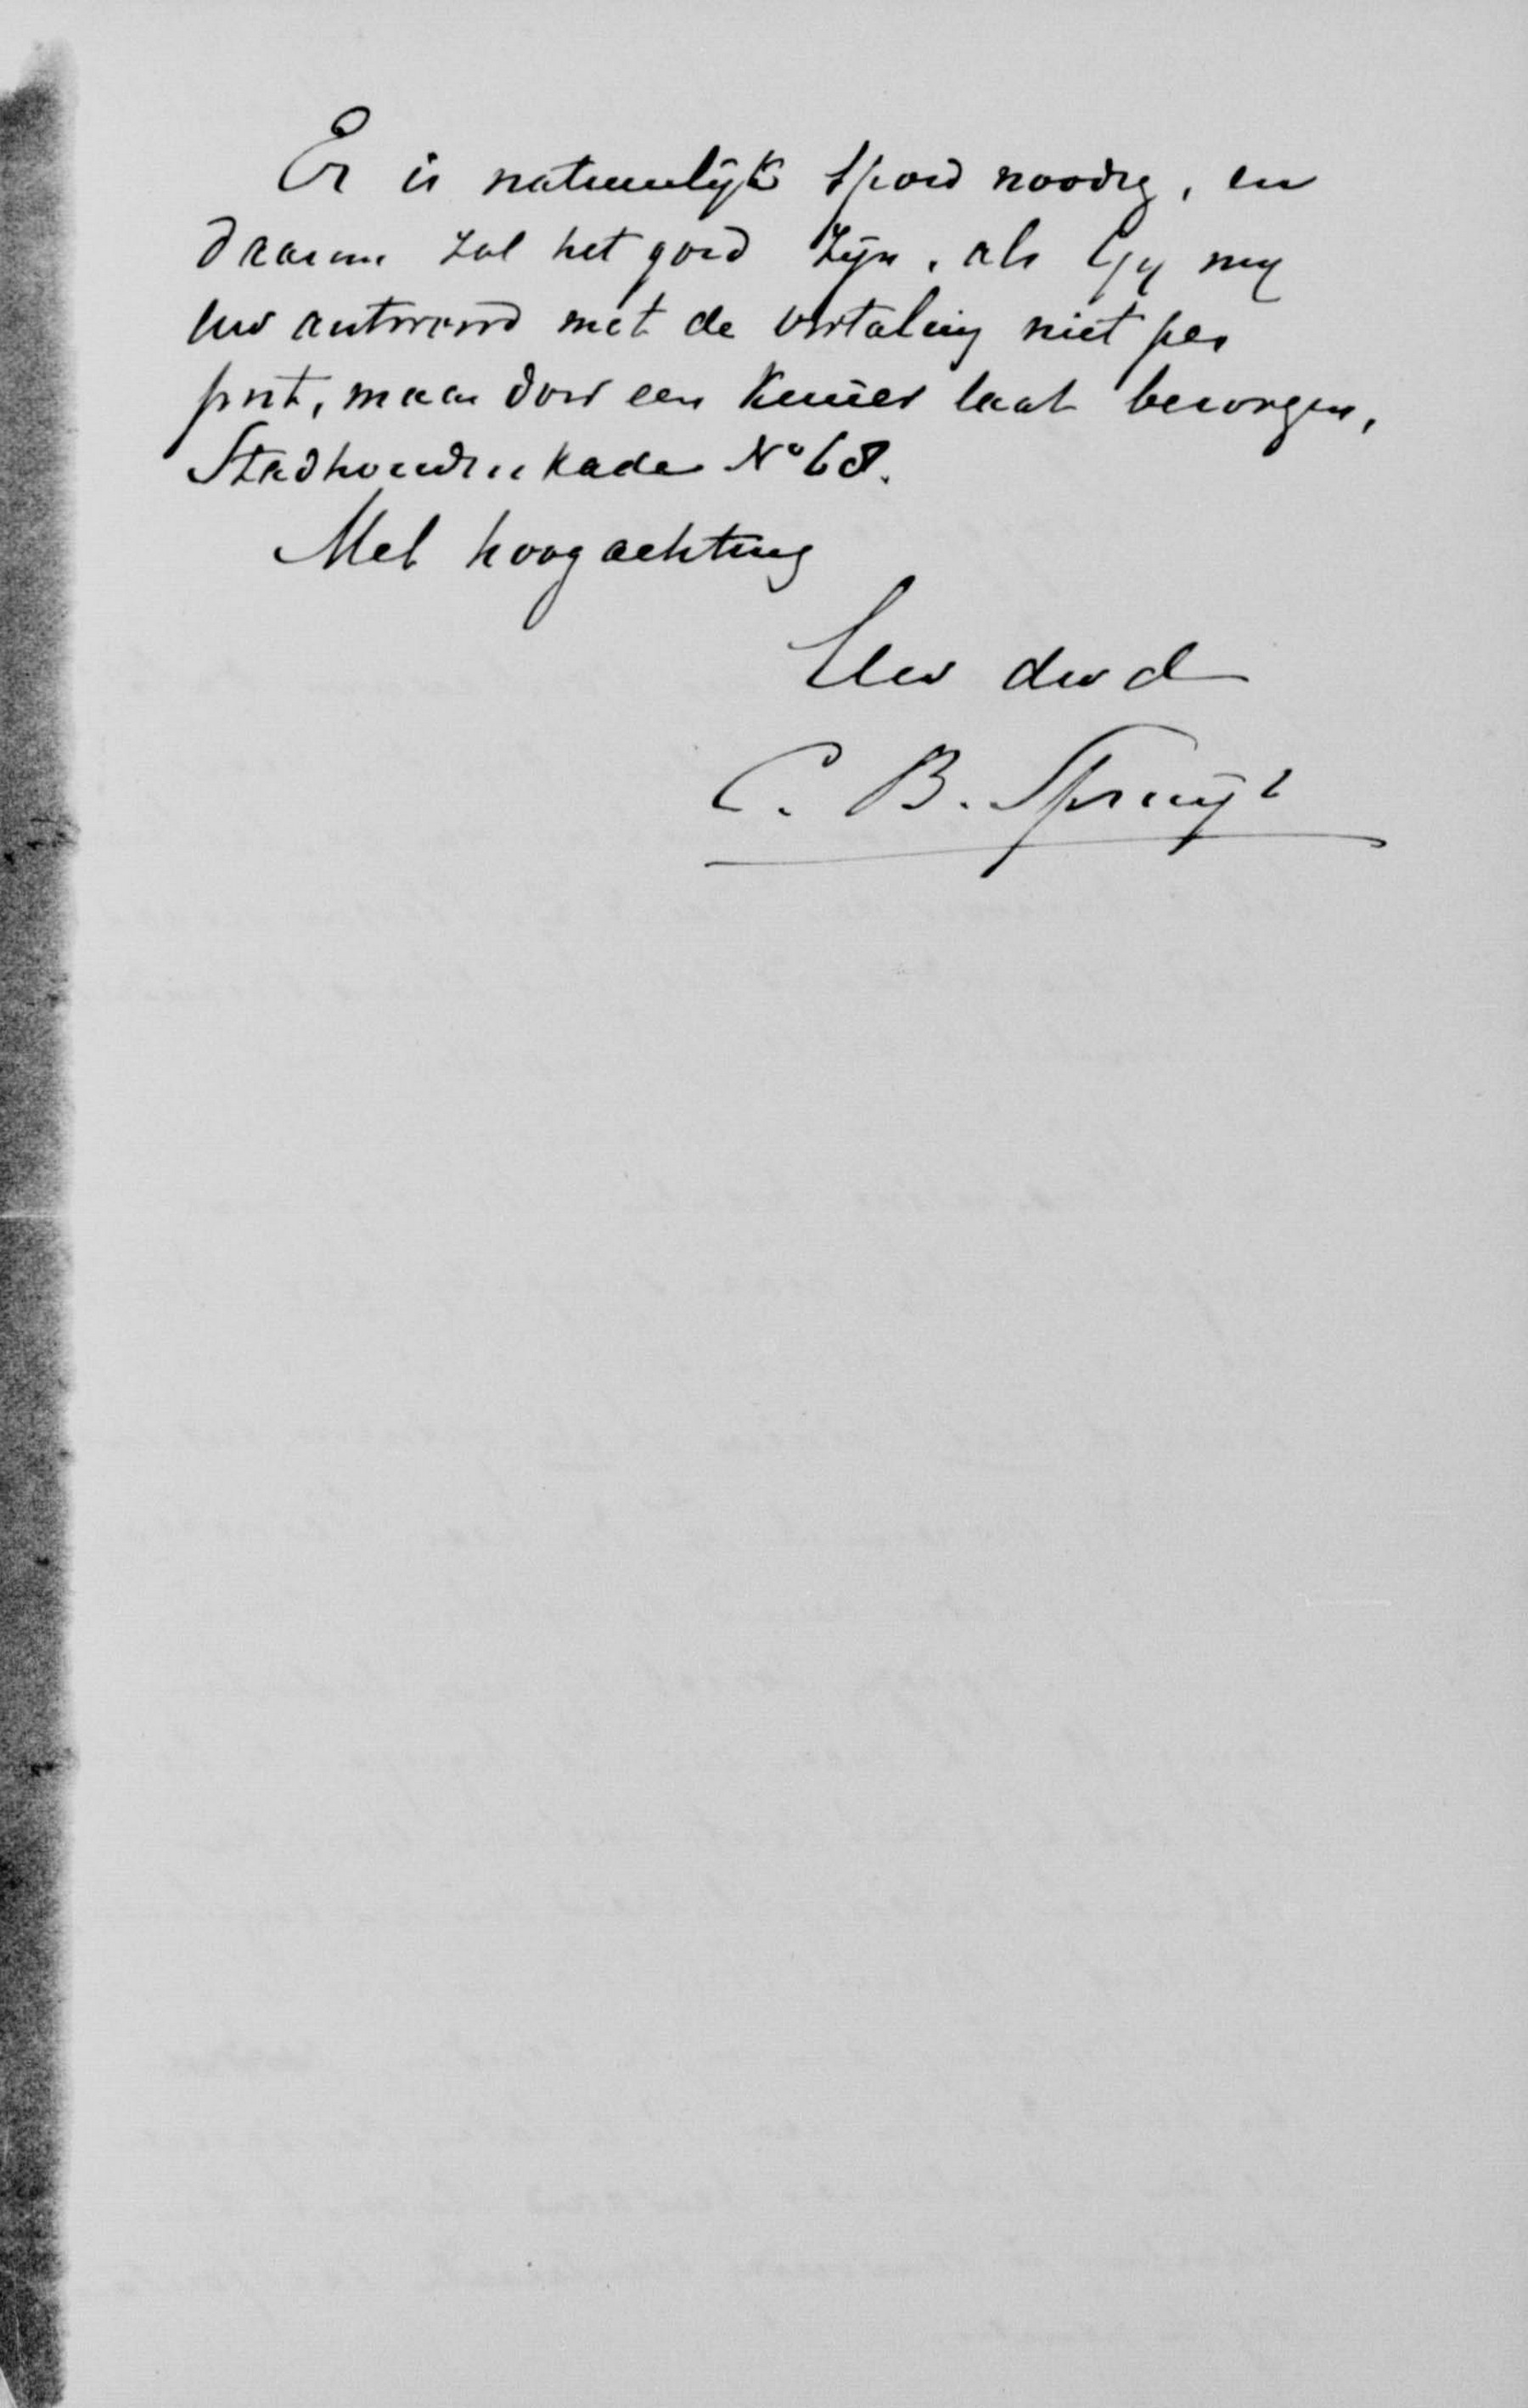 Er is natuurlijk spoed noodig, en
daarom zal het goed zijn, als Gij mij
Uw antwoord met de vertaling niet per
post, maar door een kruier laat bezorgen,
Stadhouderskade No 68.
Met hoogachting
Uw dw d
C. B. Spruijt